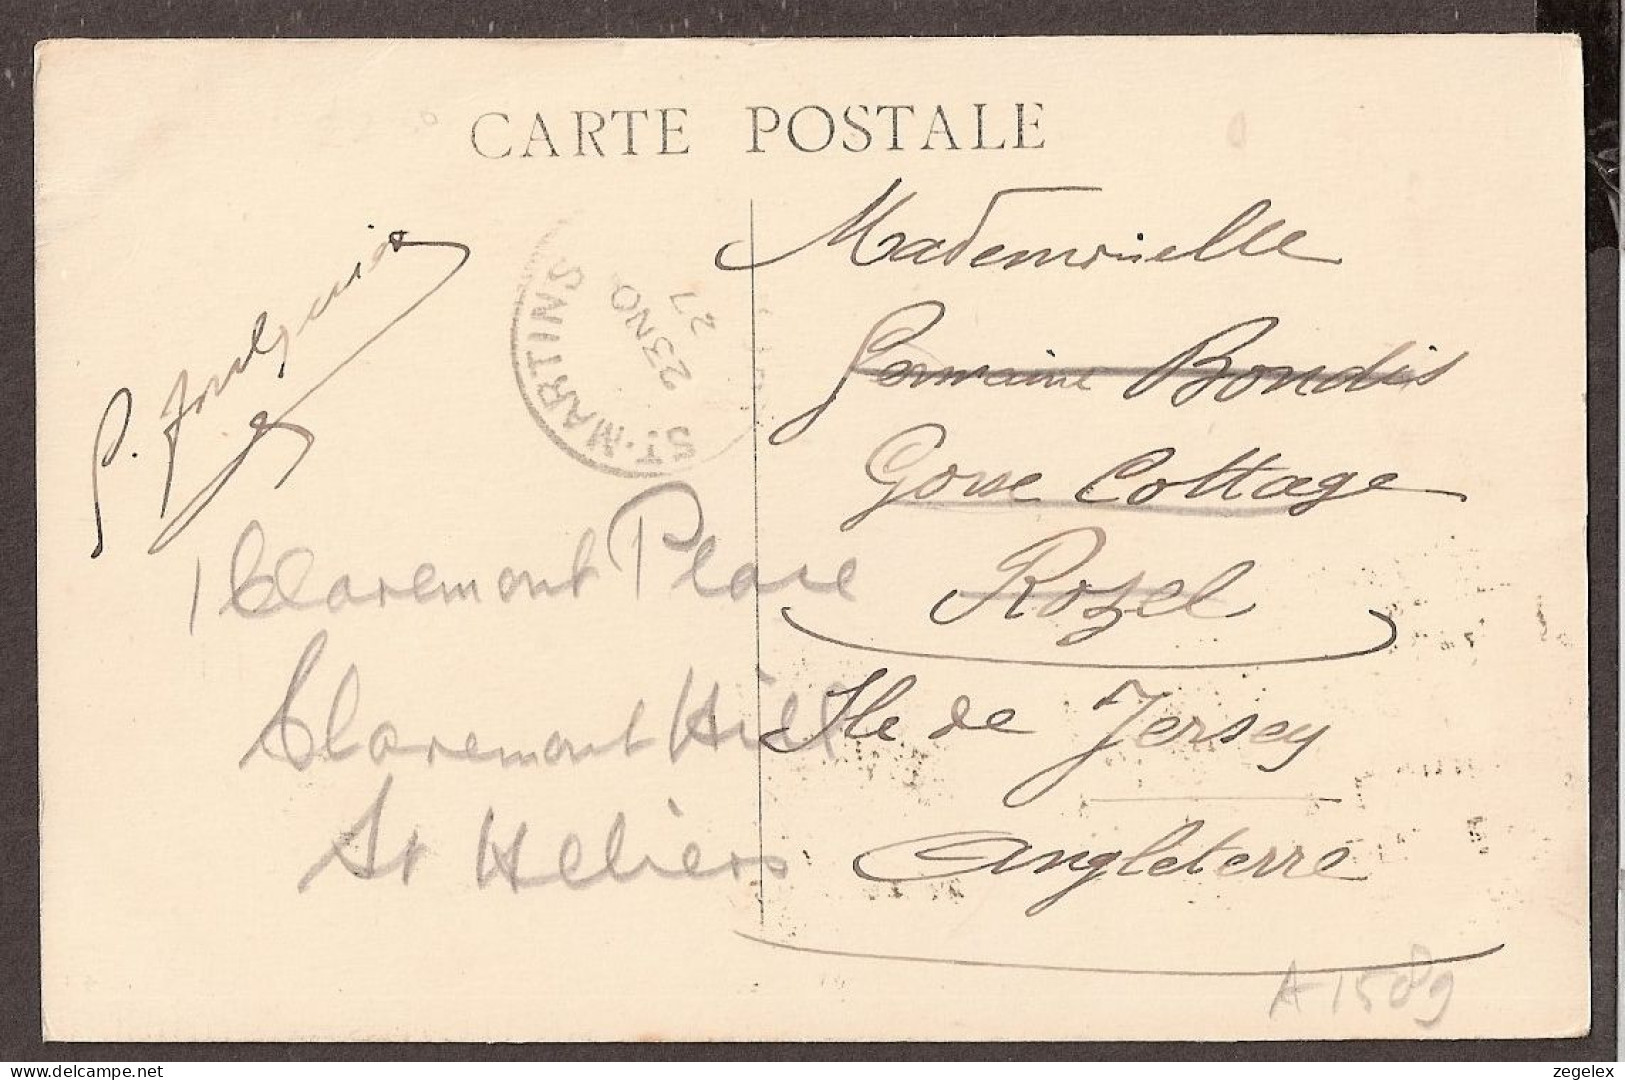 CARTE POSTALE
Mademoiselle
Germaine Bondis
Cottage
Rozel
Ile de Jersey
Angleterre
P.
ST. MARTINS
23 NO
27
1 Claremont Place
Claremont Hill
St Heliers
A1589
www.delcampe.net
zegelex